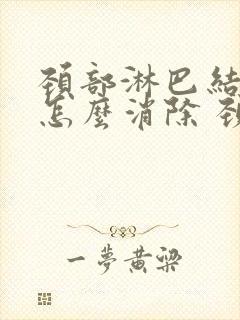 頸部淋巴結
怎麼消除 頸
一夢黃粱